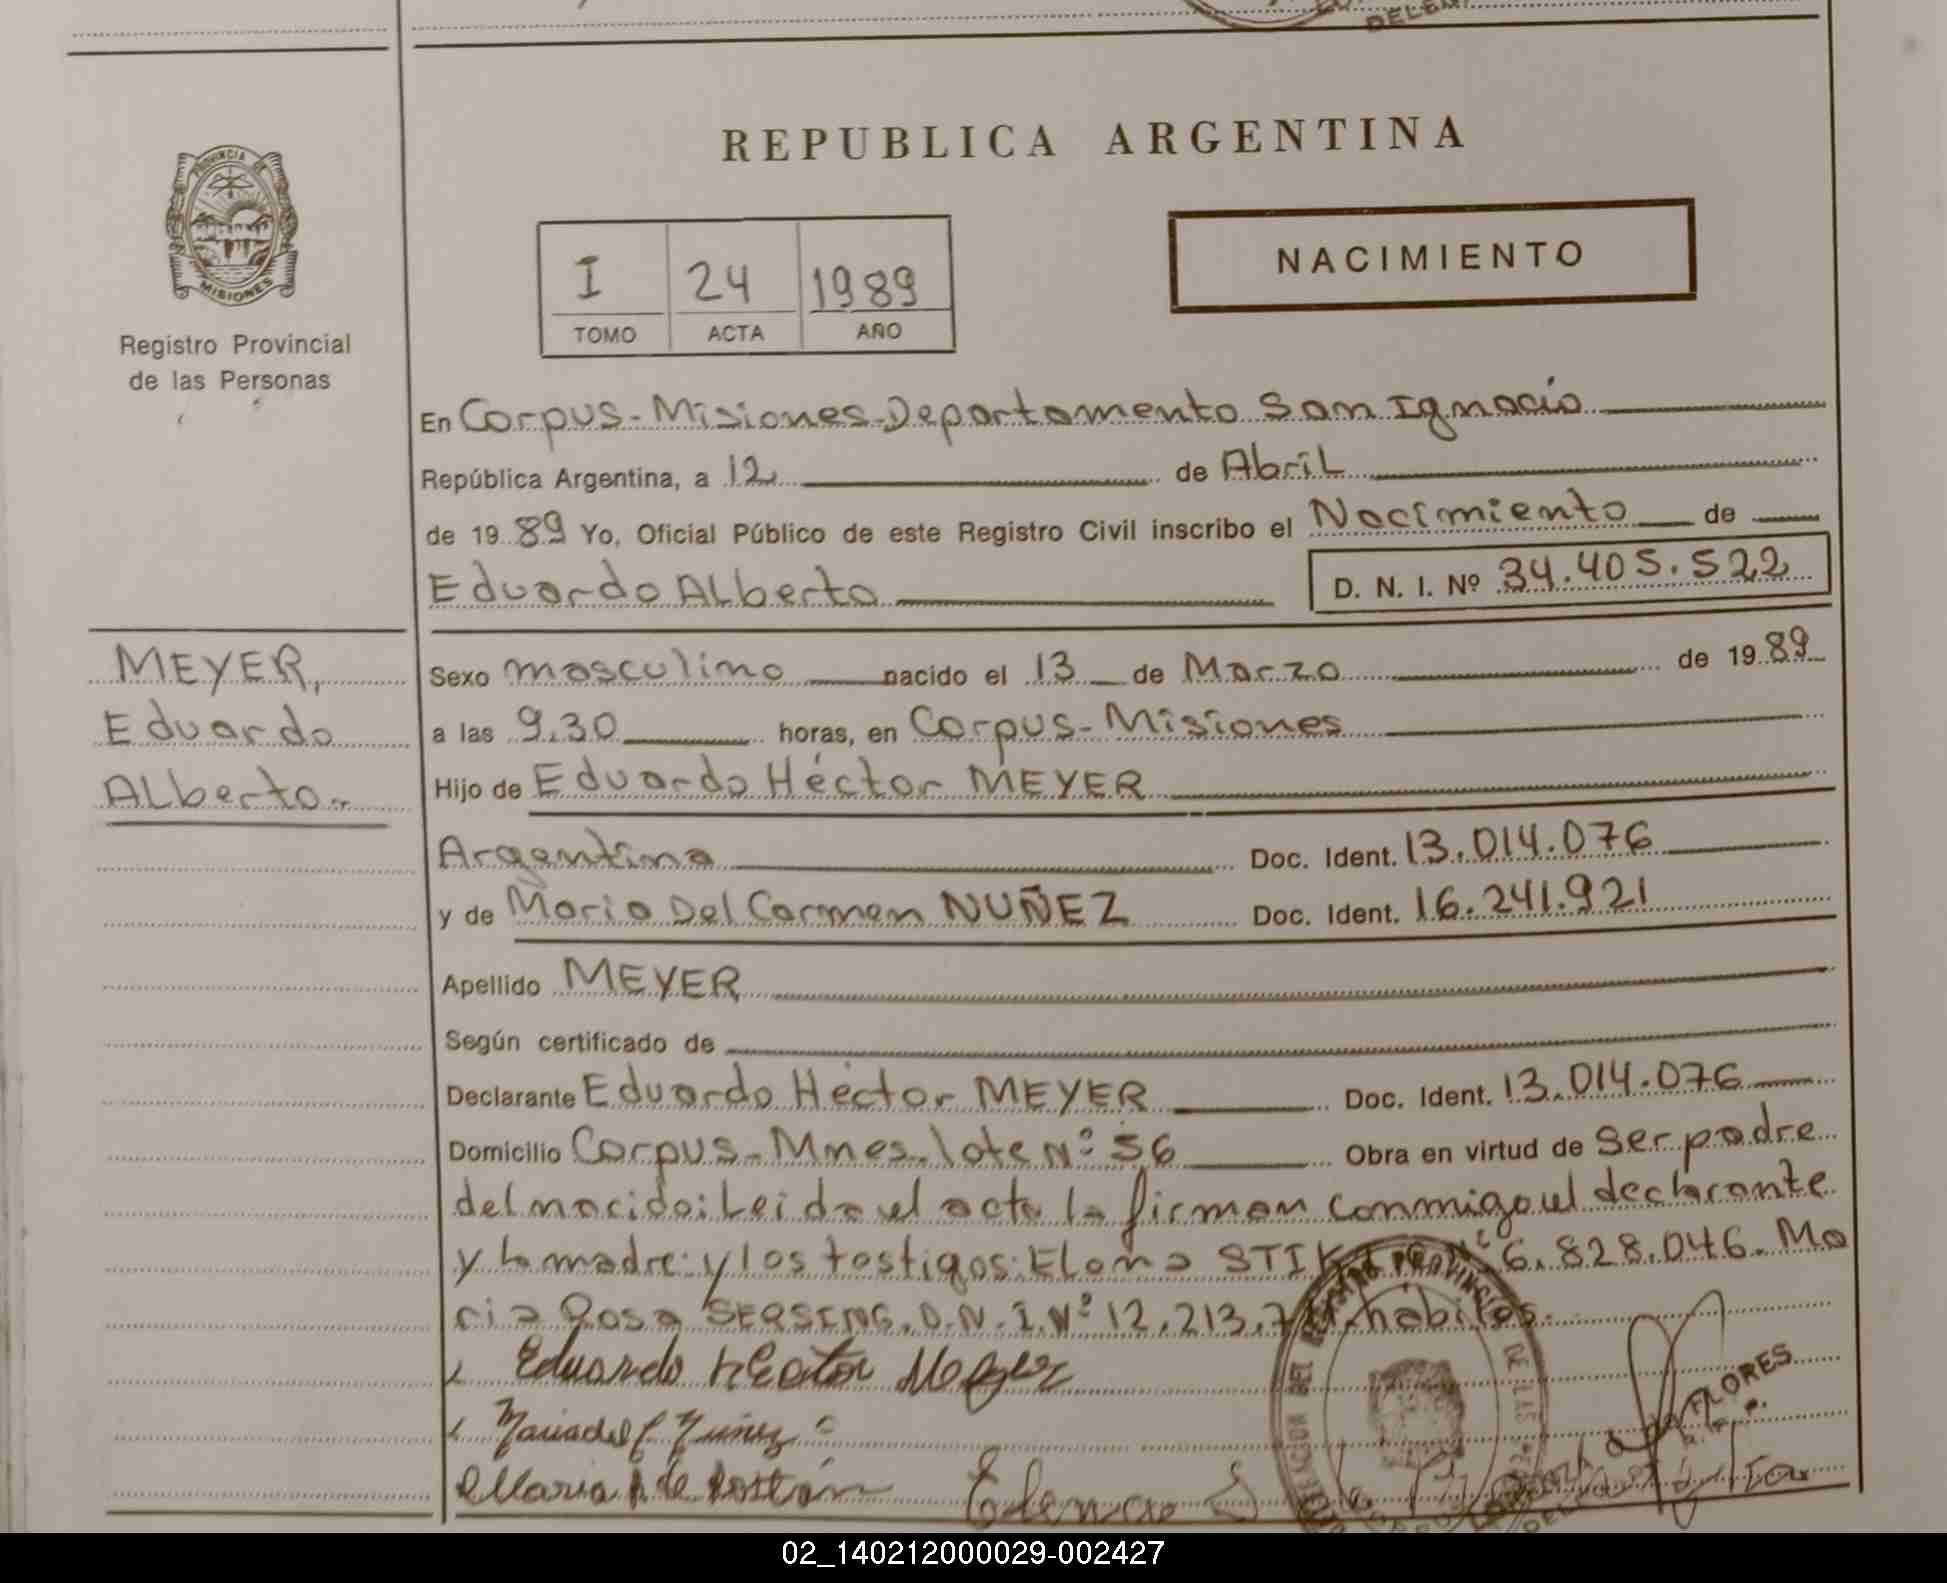 REPUBLICA ARGENTINA
PROVINCIA DE
MISIONES
Registro Provincial
de las Personas
NACIMIENTO
I 24 1989
TOMO ACTA AÑO
En Corpus-Misiones-Departamento San Ignacio
República Argentina, a 12 de Abril
de 1989 Yo, Oficial Público de este Registro Civil inscribo el Nacimiento de
Eduardo Alberto D. N. I. Nº 34.405.522
MEYER,
Eduardo
Alberto.-
Sexo masculino nacido el 13 de Marzo de 1989
a las 9.30 horas, en Corpus-Misiones
Hijo de Eduardo Héctor MEYER
Argentina Doc. Ident. 13.014.076
y de Maria Del Carmen NUÑEZ Doc. Ident. 16.241.921
Apellido MEYER
Según certificado de
Declarante Eduardo Héctor MEYER Doc. Ident. 13.014.076
Domicilio Corpus-Mnes. lote Nº 56 Obra en virtud de Ser padre
del nacido: Leida el acta la firman conmigo el declarante
y la madre y los testigos: Elena 6.828.046. Ma
ria Rosa D.N.I. Nº 12.213.7 habiles.
Eduardo Hector Meyer
Maria del C Nuñez
Maria de Elena
FLORES
02_140212000029-002427